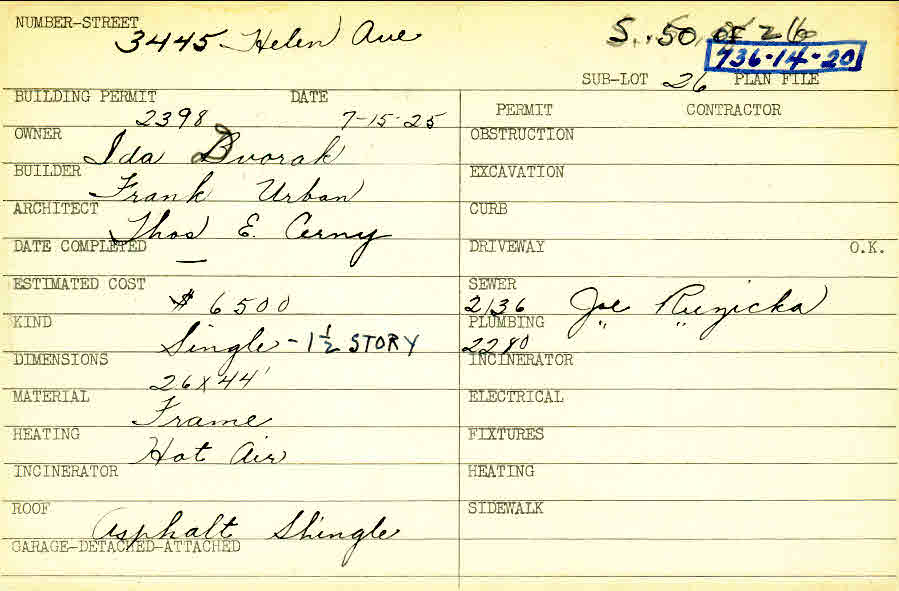 NUMBER-STREET
3445 Helen Ave
S. 50 of 26
736-14-20
SUB-LOT 26 PLAN FILE
BUILDING PERMIT DATE
2398 7-15-25
OWNER
Ida Dvorak
BUILDER
Frank Urban
ARCHITECT
Thos E. Cerny
DATE COMPLETED
—
ESTIMATED COST
$ 6500
KIND
Single - 1 1/2 STORY
DIMENSIONS
26 x 44'
MATERIAL
Frame
HEATING
Hot Air
INCINERATOR
ROOF
Asphalt Shingle
GARAGE-DETACHED-ATTACHED
PERMIT CONTRACTOR
OBSTRUCTION
EXCAVATION
CURB
DRIVEWAY O.K.
SEWER
2136 Joe Ruzicka
PLUMBING
2280 " "
INCINERATOR
ELECTRICAL
FIXTURES
HEATING
SIDEWALK